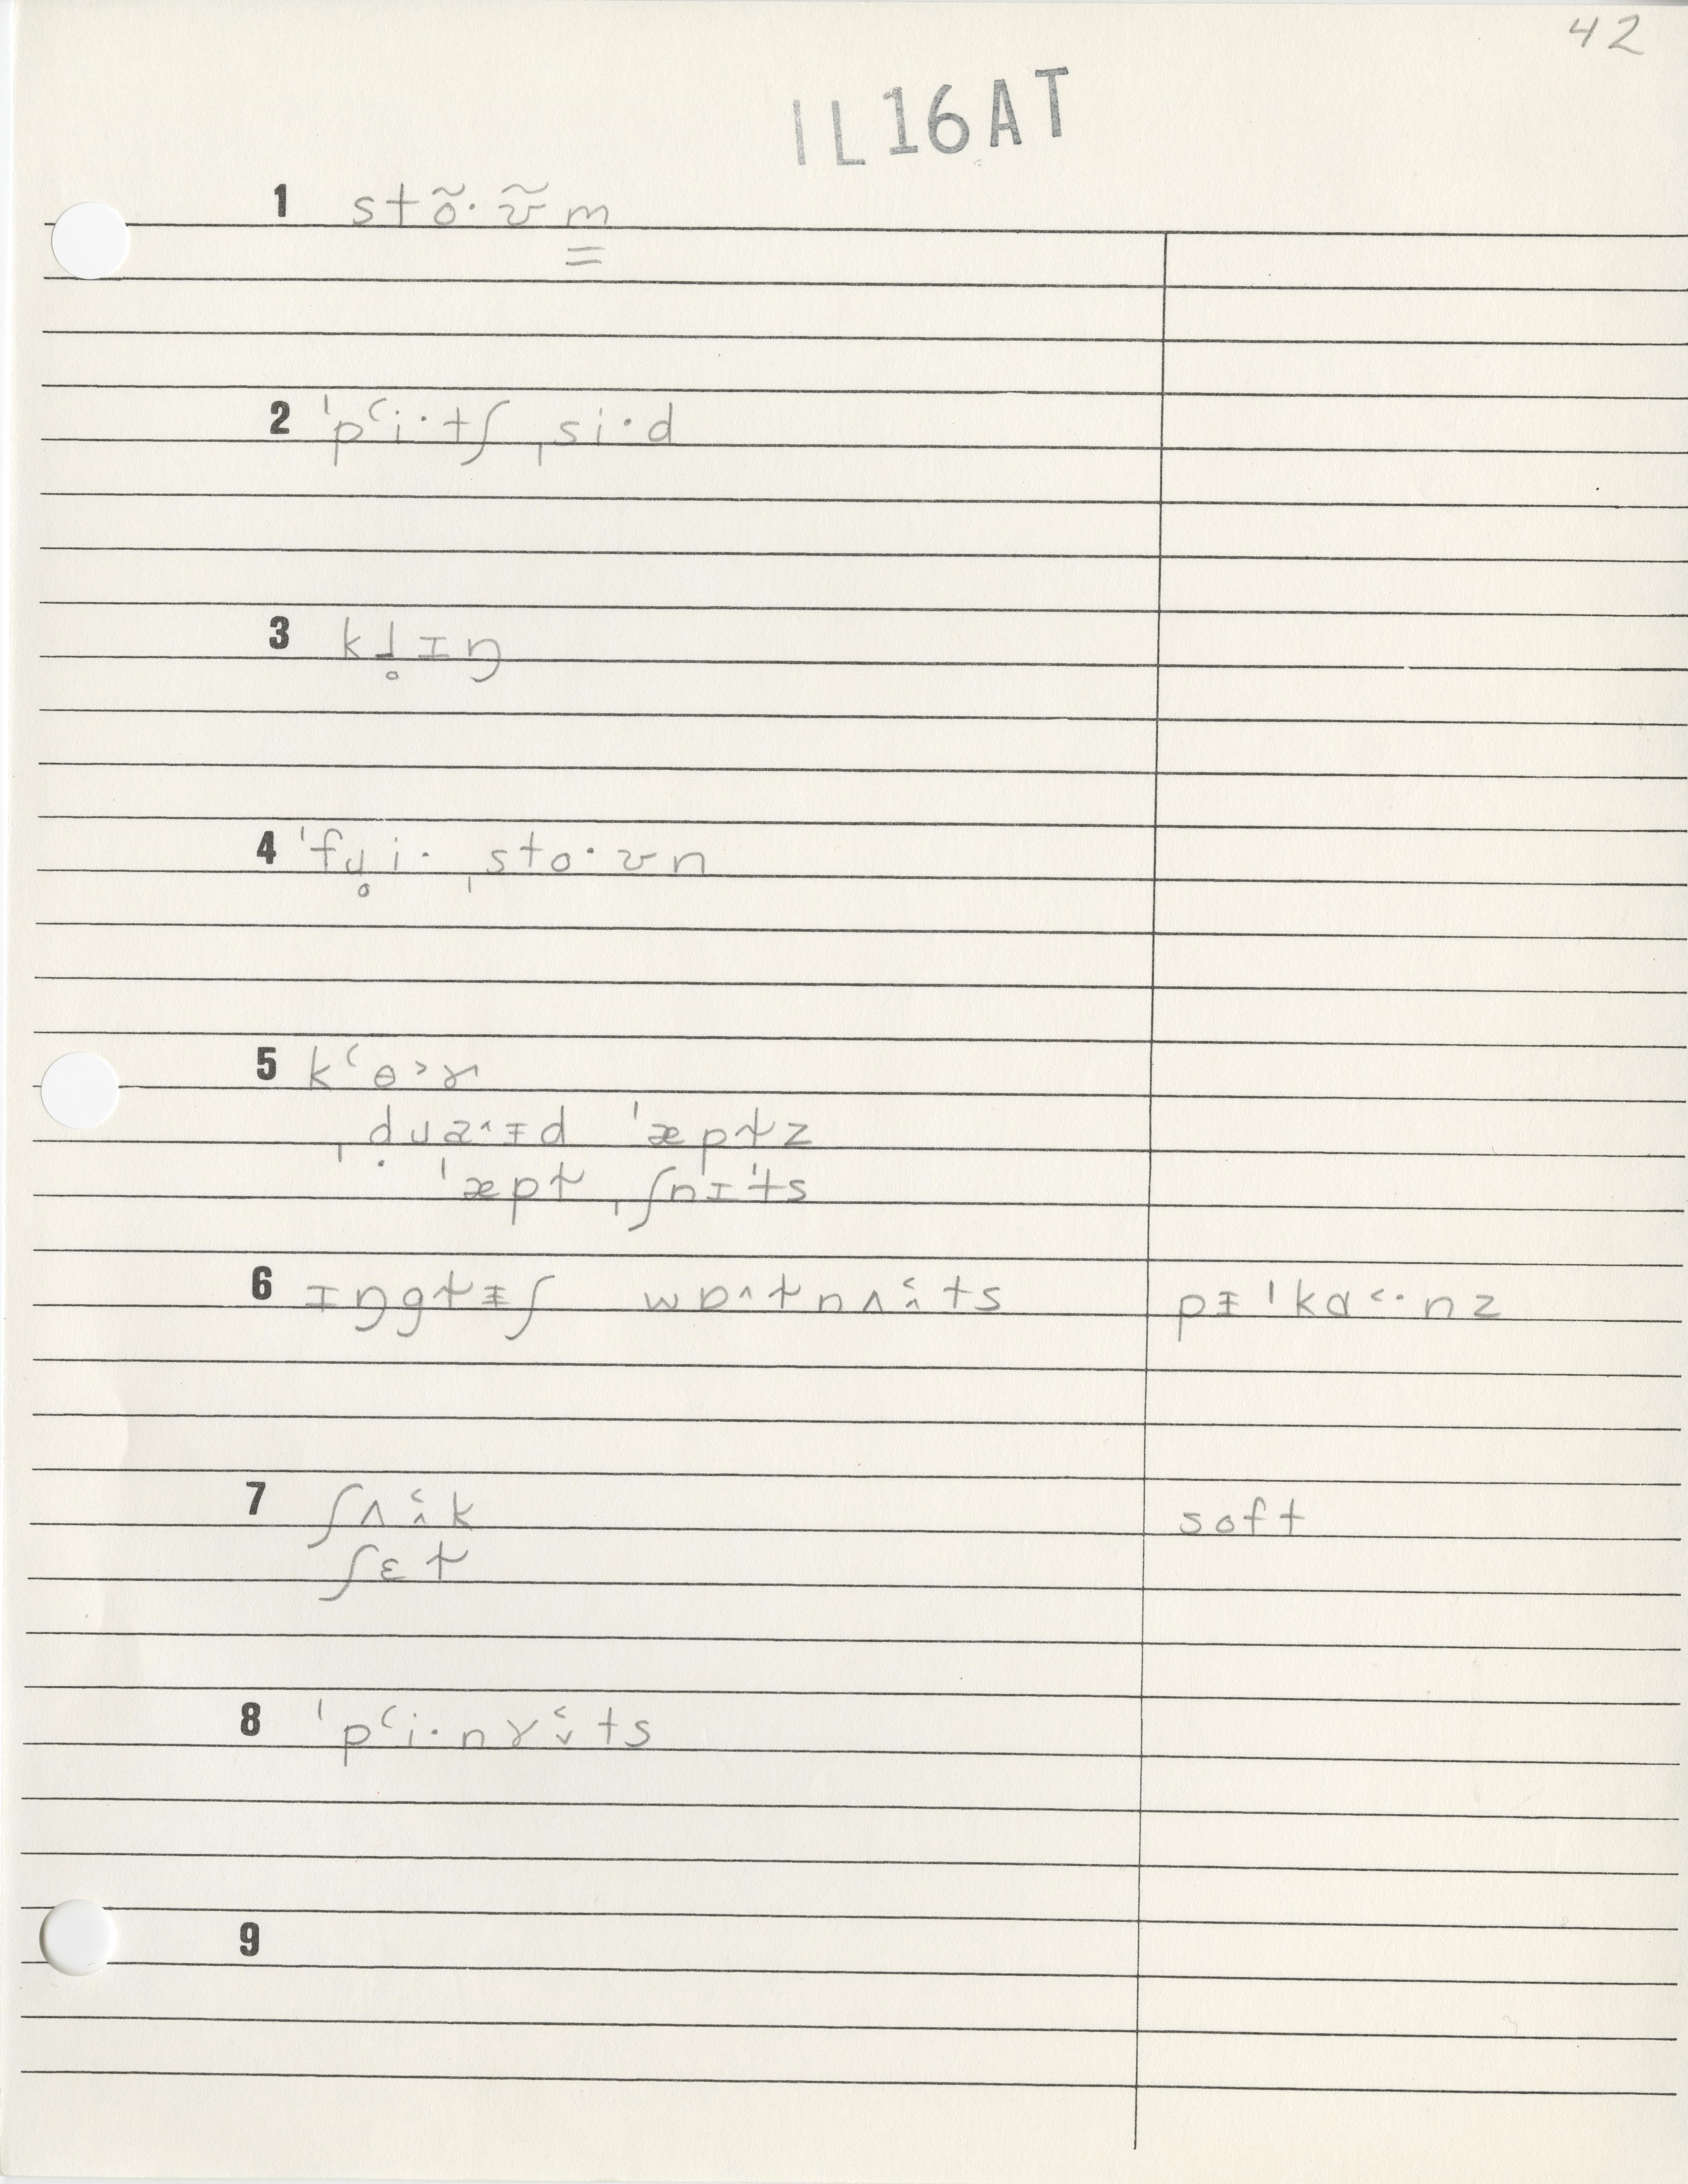 42
IL16AT
1 stõ·ʊ̃m̳
2 ˈpʻi·tʃ ˌsi·d
3 kɹ̥ɪŋ
4 ˈfɹ̥i· ˌsto·ʊn
5 kʻɵ˃ɚ
ˌdɹa˄ɪd ˈæpɫz
ˈæpɫ ˌʃnɪts
6 ɪŋgɫɪʃ wɒ˄ɫnʌi̭˂ts pɪˈkɑ˂·nz
7 ʃʌi̭˂k soft
ʃɛɫ
8 ˈpʻi·nɤi̬˂ts
9